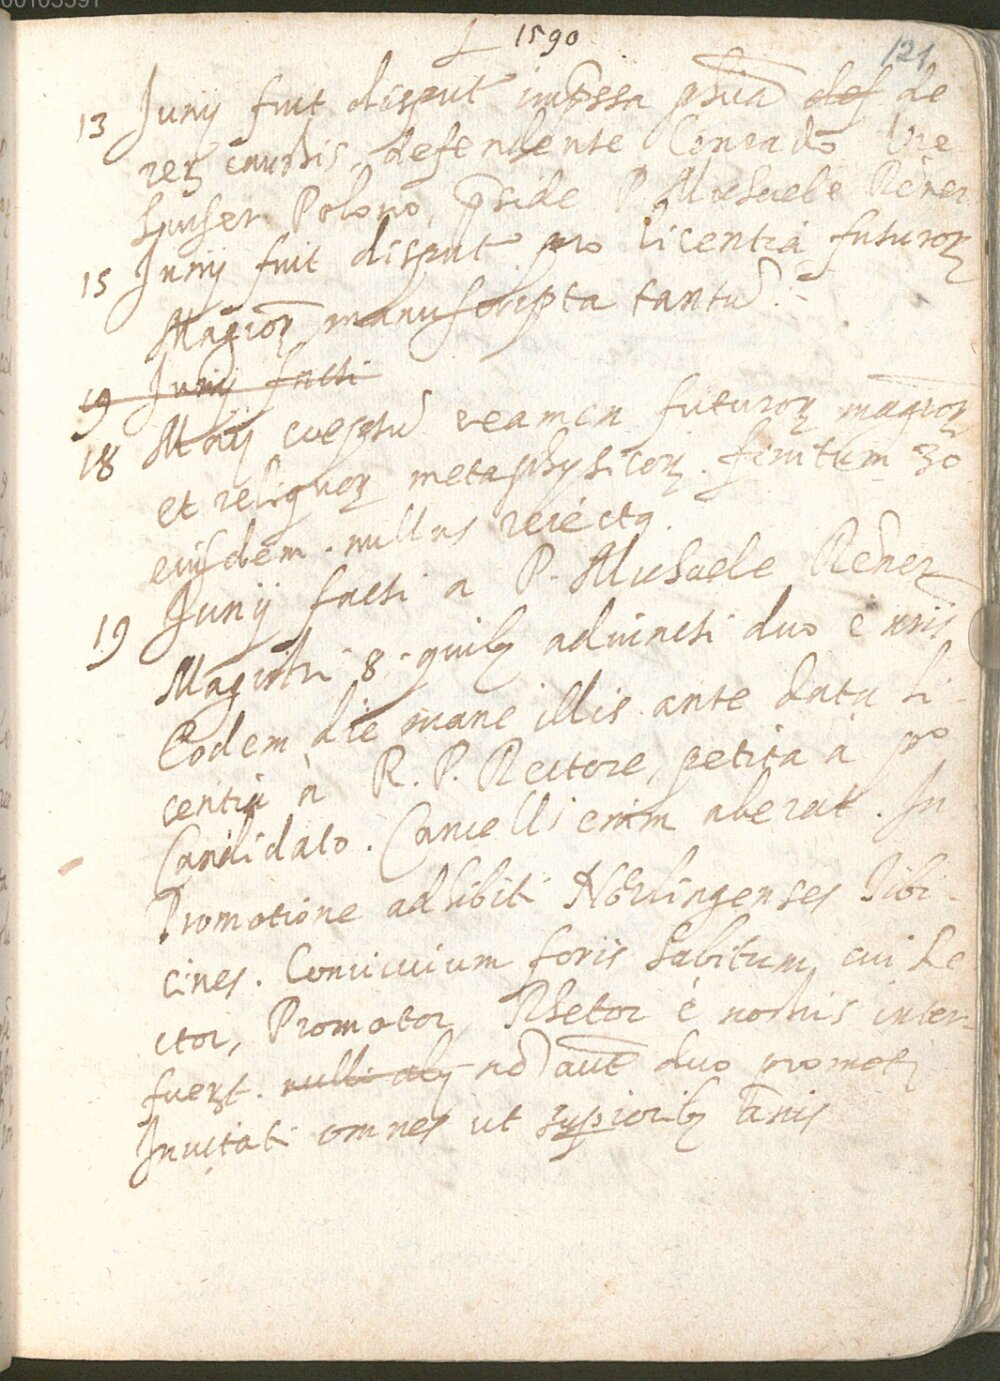 1590
121
13 Junij fuit disput impssa phica def de
rerū causis, defendente Conrado Vie
huser Polono, pside P. Michaele Rener
15 Junij fuit disput pro licentia futurorū
Magrorū manuscripta tantū.
19 Junij facti
18 Maij coeptū examen futurorū magrorū
et reliquorū metaphysicorū. finitum 30
eiusdem. nullus reiectq.
19 Junij facti a P. Michaele Rener
Magistri 8. quibq adiuncti duo è nris
Eodem die mane illis ante data li-
centia à R. P. Rectore, petita à p°
Candidato. Cancell⁹ enim aberat. In
Promotione adhibiti Nörlingenses Tibi-
cines. Conuiuium foris habitum, cui Re
ctor, Promotor, Rhetor è nostris inter-
fuert. nulli alij nō aūt duo promoti
Inuitati omnes ut supioribq annis